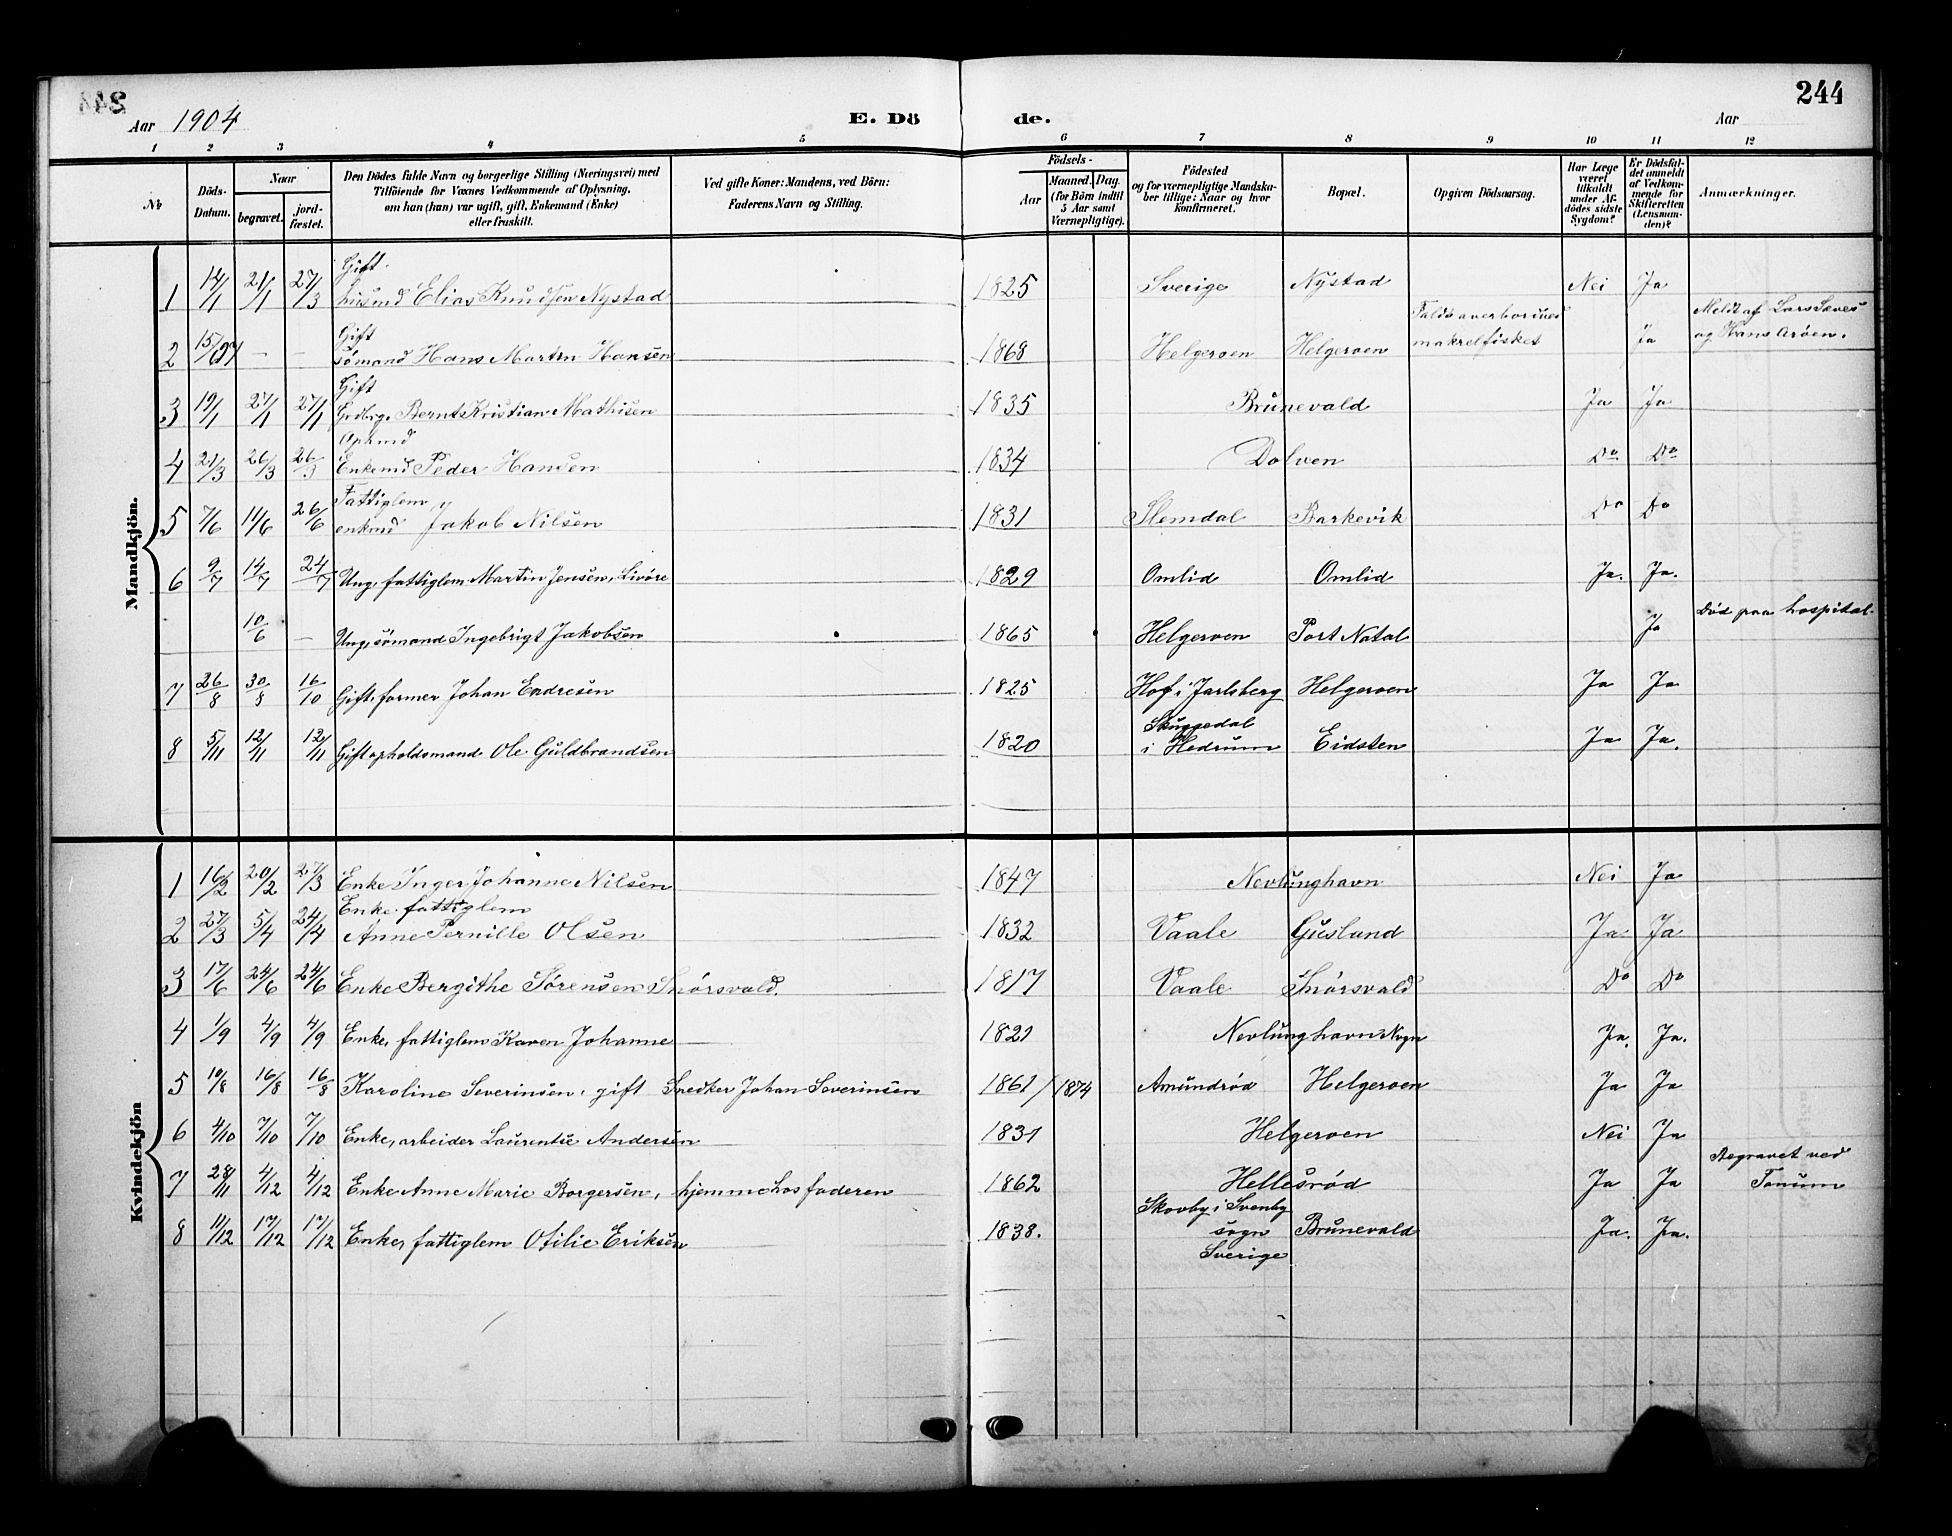 244
Aar 1904 E. Dö de. Aar
1 2 3 4 5 6 7 8 9 10 11 12
№ Döds-Datum. Naar begravet. jord-fæstet. Den Dödes fulde Navn og borgerlige Stilling (Næringsvei) med Tilföiende for Voxnes Vedkommende af Oplysning, om han (hun) var ugift, gift, Enkemand (Enke) eller fraskilt. Ved gifte Koner: Mandens, ved Börn: Faderens Navn og Stilling. Födsels- Aar Maaned. Dag. (for Börn indtil 5 Aar samt Værnepligtige). Födested og for værnepligtige Mandska-ber tillige: Naar og hvor Konfirmeret. Bopæl. Opgiven Dödsaarsag. Har Læge været tilkaldt under Af-dödes sidste Sygdom? Er Dödsfal-det anmeldt af Vedkom-mende for Skifteretten (Lensman-den)? Anmærkninger.
Mandkjön.
Gift
1 14/1 21/1 27/3 husmd Elias Knudsen Nystad 1825 Sverige Nystad Nei Ja
Gift Faldt overbord ved Meldt af Lars Seves
2 15/7 — — sömand Hans Martin Hansen 1868 Helgeroen Helgeroen makrelfisket Ja og Hans Aröen.
Gift
3 19/1 27/1 27/1 Grdbrg. Bernt Kristian Mathisen 1835 Brunevald Ja Ja
Ophmd
4 21/3 26/3 26/3 Enkemd Peder Hansen 1834 Dolven Do Do
Fattiglem
5 7/6 11/6 26/6 enkmd Jakob Nilsen 1831 Slemdal Barkevik Do Do
6 9/7 14/7 24/7 Ung. fattiglem Martin Jensen, Livöre 1829 Omlid Omlid Ja. Ja.
10/6 — Ung. sömand Ingebrigt Jakobsen 1865 Helgeroen Port Natal Ja Död paa hospital
7 26/8 30/8 16/10 Gift, former Johan Endresen 1825 Hof i Jarlsberg Helgeroen Ja Ja
Skuggedal
8 5/11 12/11 12/11 Gift opholdsmand Ole Guldbrandsen 1820 i Hedrum Eidsten Ja Ja.
Kvindekjön
1 16/2 20/2 27/3 Enke Inger Johanne Nilsen 1847 Nevlunghavn Nei Ja
Enke fattiglem
2 27/3 5/4 24/4 Anne Pernille Olsen 1832 Vaale Guslund Ja Ja
3 17/6 24/6 24/6 Enke Bergithe Sörensen Snörsvald. 1817 Vaale Snörsvald Do Do
4 1/9 4/9 4/9 Enke, fattiglem Karen Johanne 1821 Nevlunghavn Ja. Ja.
5 10/8 16/8 16/8 Karoline Severinsen, gift Snedker Johan Severinsen 1861/1874 Amundröd Helgeroen Ja Ja
6 4/10 7/10 7/10 Enke, arbeider Laurentse Andersen 1831 Helgeroen Nei Ja
7 28/11 4/12 4/12 Enke Anne Marie Borgersen, hjemme hos faderen 1862 Hellesröd Ja Ja Begravet ved Tanum
8 11/12 17/12 17/12 Enke, fattiglem Otilie Eriksen 1838. Skovby i Svenby sogn Sverige Brunevald Ja. Ja.